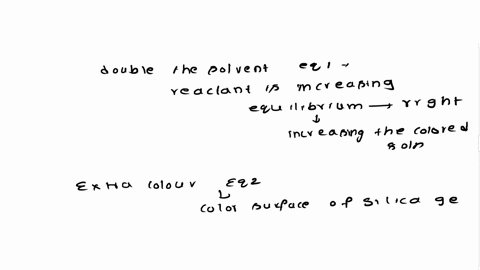 double the solvent eq 1 -
reactant is increasing
equilibrium → rright
↓
increasing the colored
soln
Extra colour Eq2
↳
color surface of silica ge